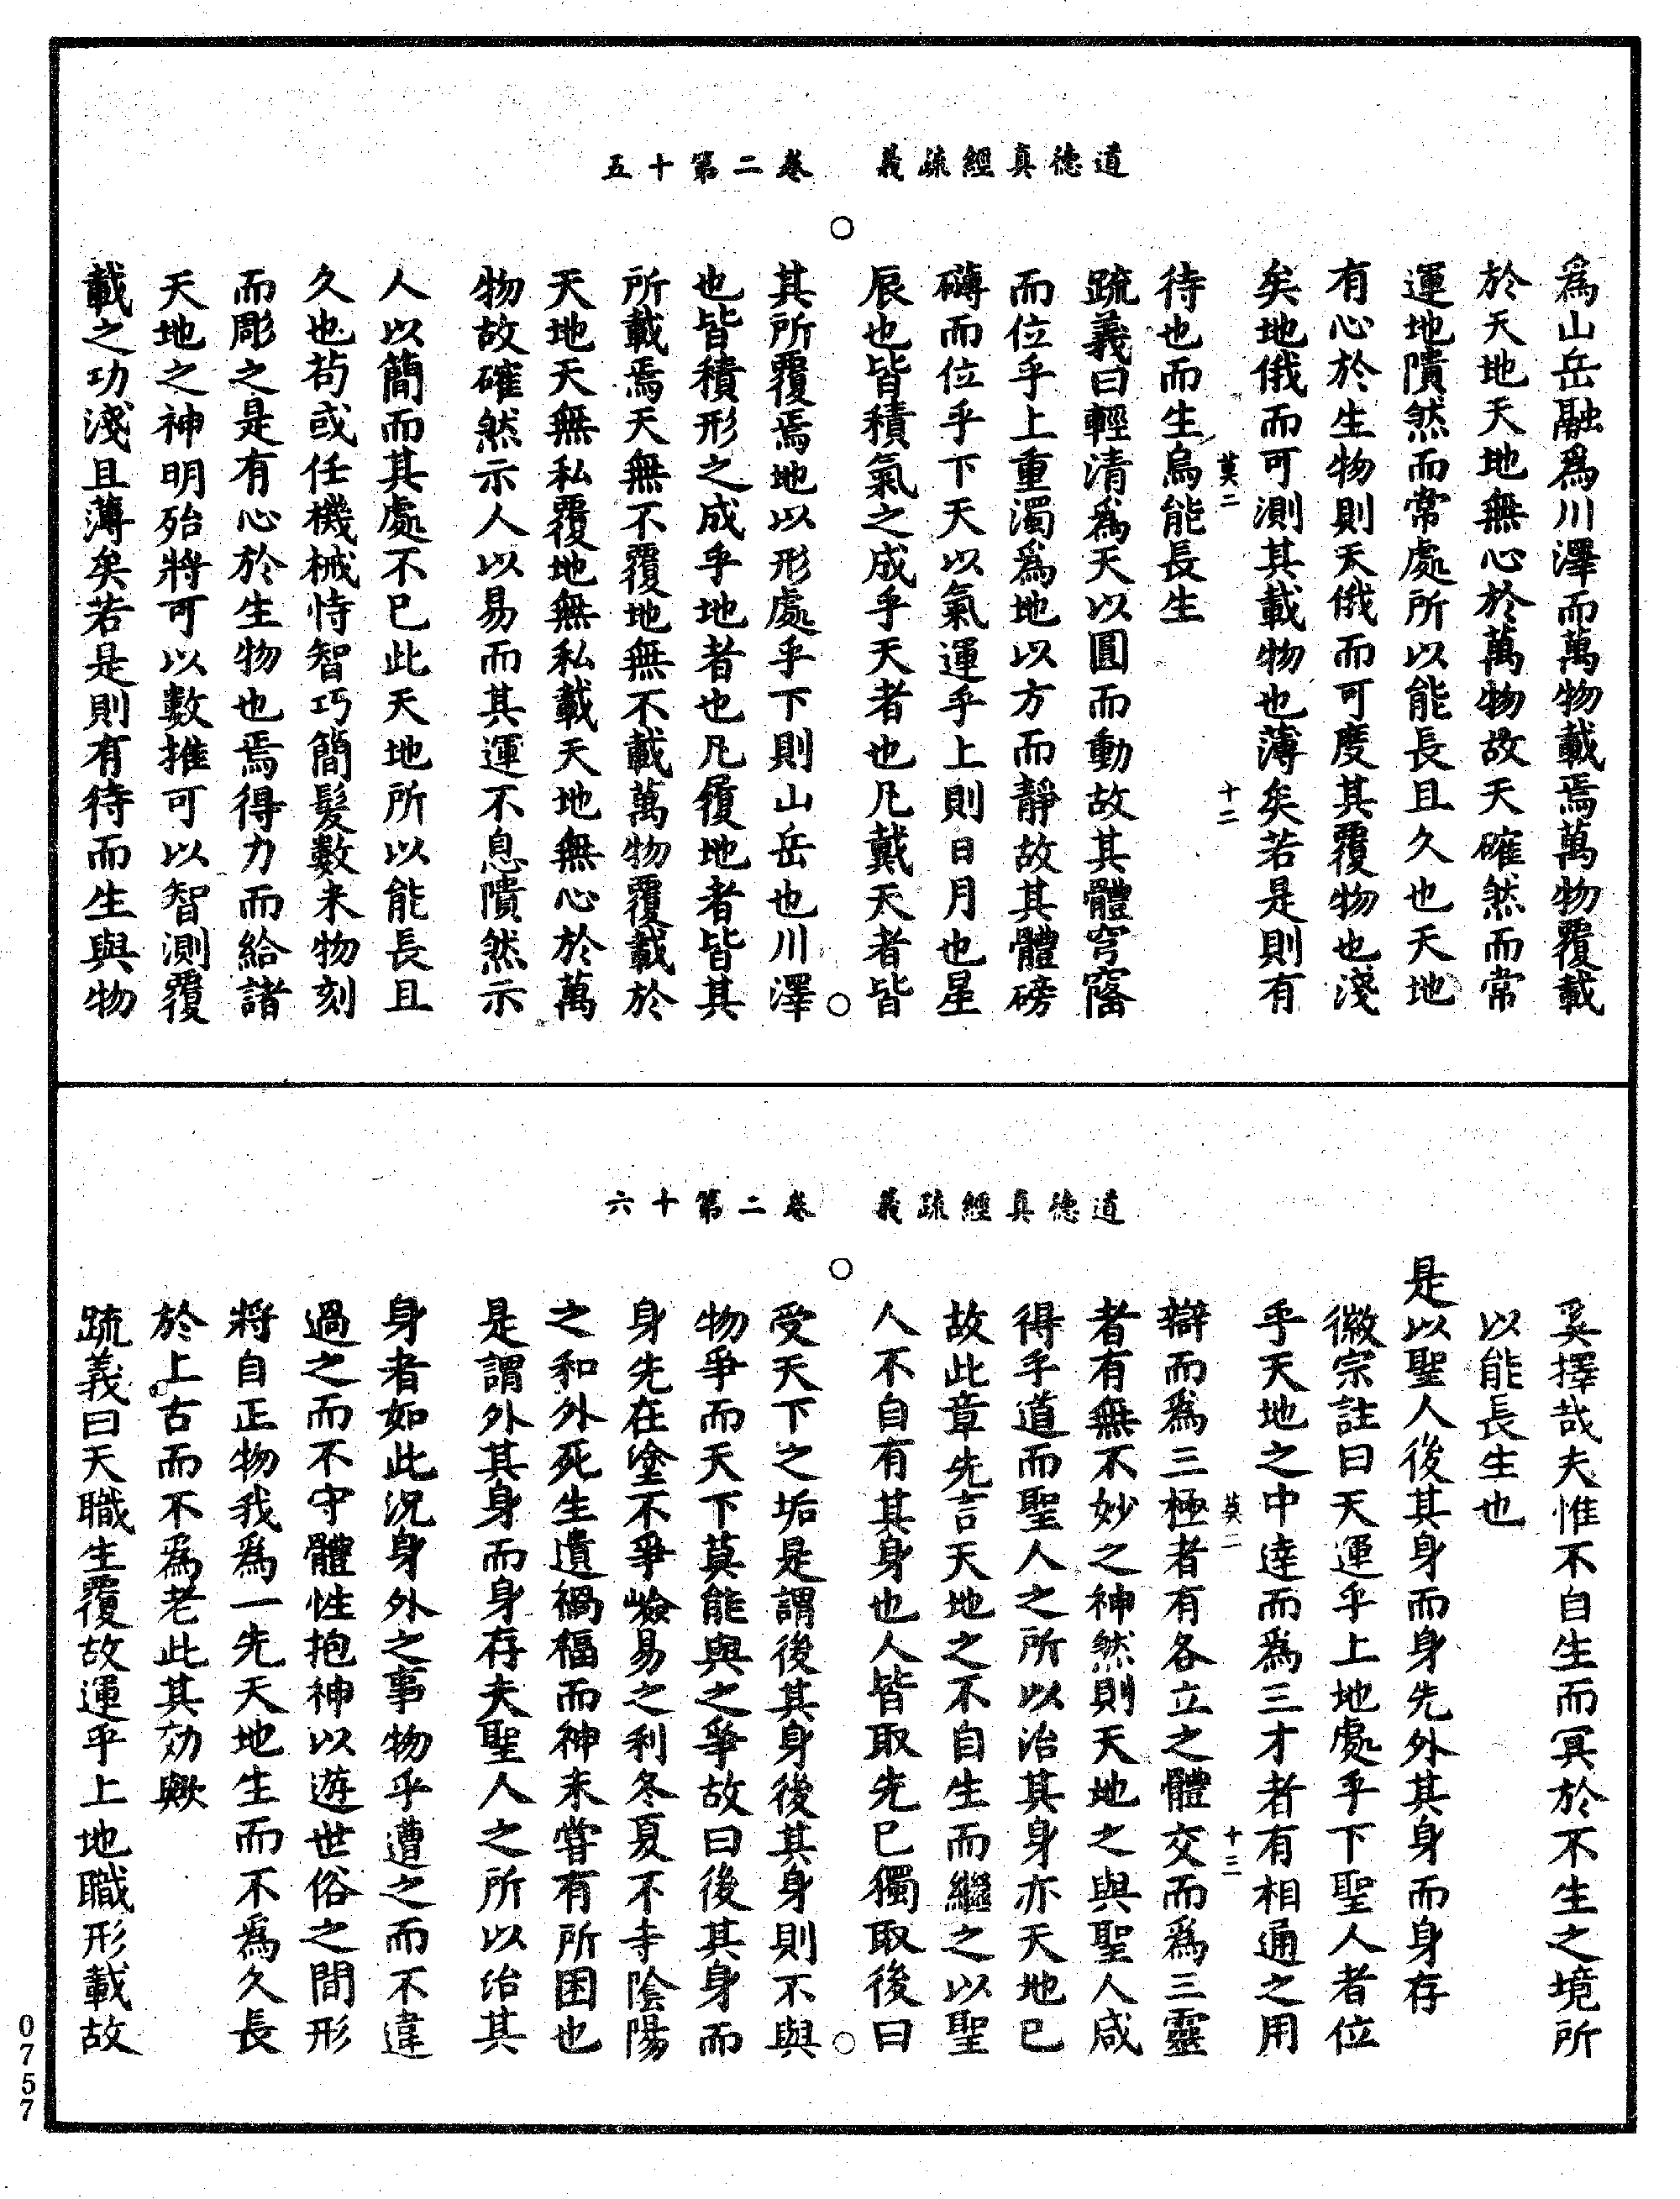 道德真經疏義　卷二第十五
爲山岳融爲川澤而萬物載焉萬物覆載
於天地天地無心於萬物故天確然而常
運地隤然而常處所以能長且久也天地
有心於生物則天俄而可度其覆物也淺
矣地俄而可測其載物也薄矣若是則有
莫二　十二
待也而生烏能長生
疏義曰輕清爲天以圓而動故其體穹窿
而位乎上重濁爲地以方而靜故其體磅
礴而位乎下天以氣運乎上則日月也星
辰也皆積氣之成乎天者也凡戴天者皆
其所覆焉地以形處乎下則山岳也川澤
也皆積形之成乎地者也凡履地者皆其
所載焉天無不覆地無不載萬物覆載於
天地天無私覆地無私載天地無心於萬
物故確然示人以易而其運不息隤然示
人以簡而其處不已此天地所以能長且
久也苟或任機械恃智巧簡髮數米物刻
而彫之是有心於生物也焉得力而給諸
天地之神明殆將可以數推可以智測覆
載之功淺且薄矣若是則有待而生與物
道德真經疏義　卷二第十六
奚擇哉夫惟不自生而冥於不生之境所
以能長生也
是以聖人後其身而身先外其身而身存
徽宗註曰天運乎上地處乎下聖人者位
乎天地之中達而爲三才者有相通之用
莫二　十三
辯而爲三極者有各立之體交而爲三靈
者有無不妙之神然則天地之與聖人咸
得乎道而聖人之所以治其身亦天地已
故此章先言天地之不自生而繼之以聖
人不自有其身也人皆取先已獨取後曰
受天下之垢是謂後其身後其身則不與
物爭而天下莫能與之爭故曰後其身而
身先在塗不爭嶮易之利冬夏不寺陰陽
之和外死生遺禍福而神未嘗有所困也
是謂外其身而身存夫聖人之所以治其
身者如此況身外之事物乎遭之而不違
過之而不守體性抱神以遊世俗之間形
將自正物我爲一先天地生而不爲久長
於上古而不爲老此其効歟
疏義曰天職生覆故運乎上地職形載故
0757